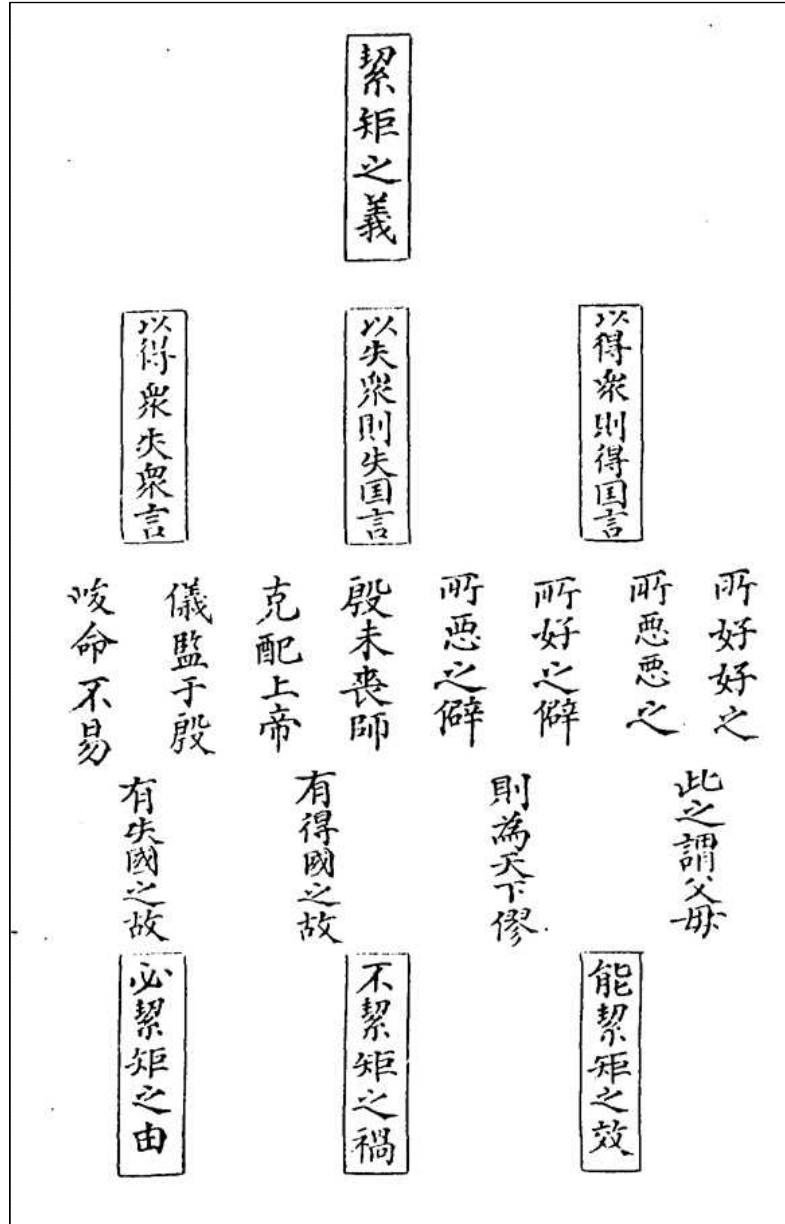 絜矩之義
以得衆則得国言
以失衆則失国言
以得衆失衆言
所好好之
所惡惡之
所好之僻
所惡之僻
殷未喪師
克配上帝
儀監于殷
峻命不易
此之謂父母
則為天下僇
有得國之故
有失國之故
能絜矩之效
不絜矩之禍
必絜矩之由